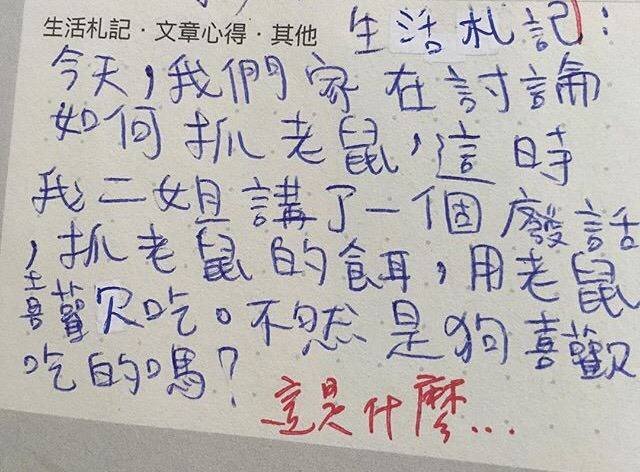 生活札記·文章心得·其他
生活札記:
今天,我們家在討論
如何抓老鼠,這時
我二姐講了一個廢話
,抓老鼠的餌,用老鼠
喜歡吃。不然是狗喜歡
吃的嗎?
這是什麼...